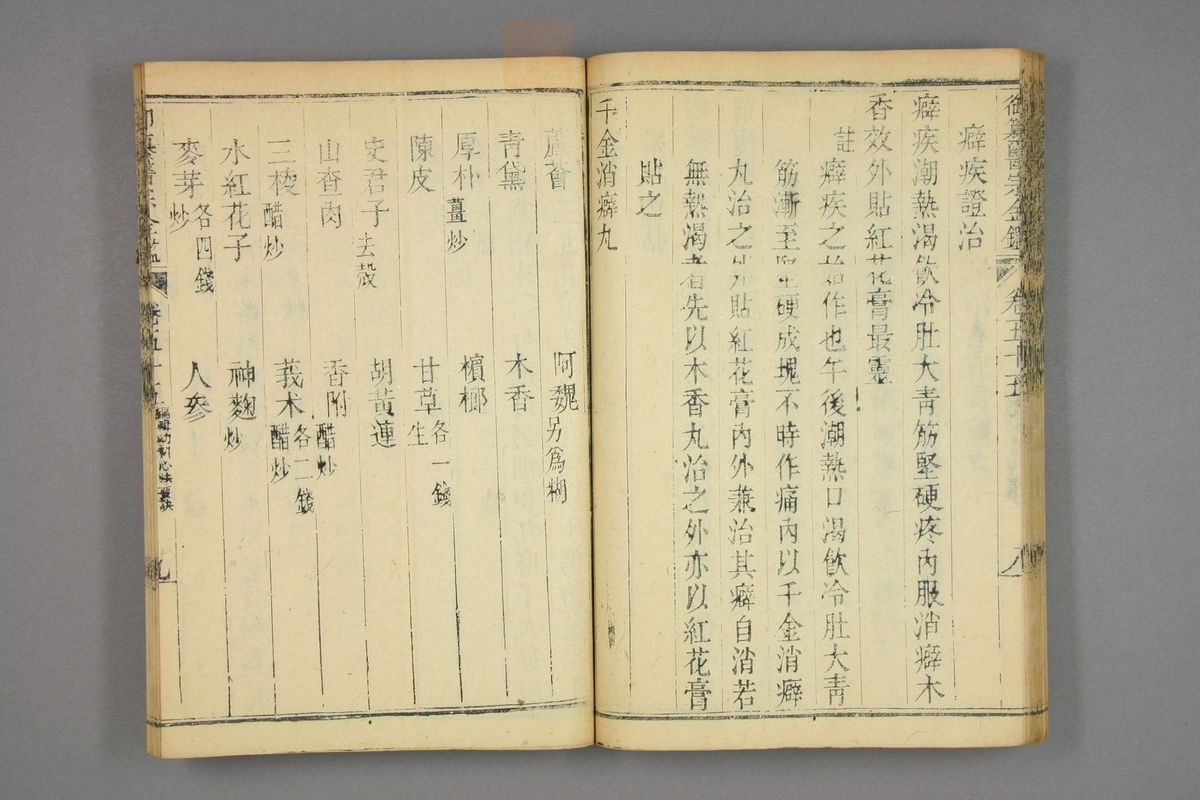 御纂醫宗金鑑 卷五十五 八
癖疾證治
癖疾潮熱渴飲冷肚大青筋堅硬疼內服消癖木
香效外貼紅花膏最靈
註 癖疾之始作也午後潮熱口渴飲冷肚大青
筋漸至堅硬成塊不時作痛內以千金消癖
丸治之外貼紅花膏內外兼治其癖自消若
無熱渴者先以木香丸治之外亦以紅花膏
貼之
千金消癖丸
蘆薈 阿魏另為糊
青黛 木香
厚朴薑炒 檳榔
陳皮 甘草各一錢生
史君子去殼 胡黃連
山查肉 香附醋炒
三棱醋炒 莪术各二錢醋炒
水紅花子 神麴炒
麥芽各四錢炒 人參
卷五十五 編輯幼科心法要訣 九